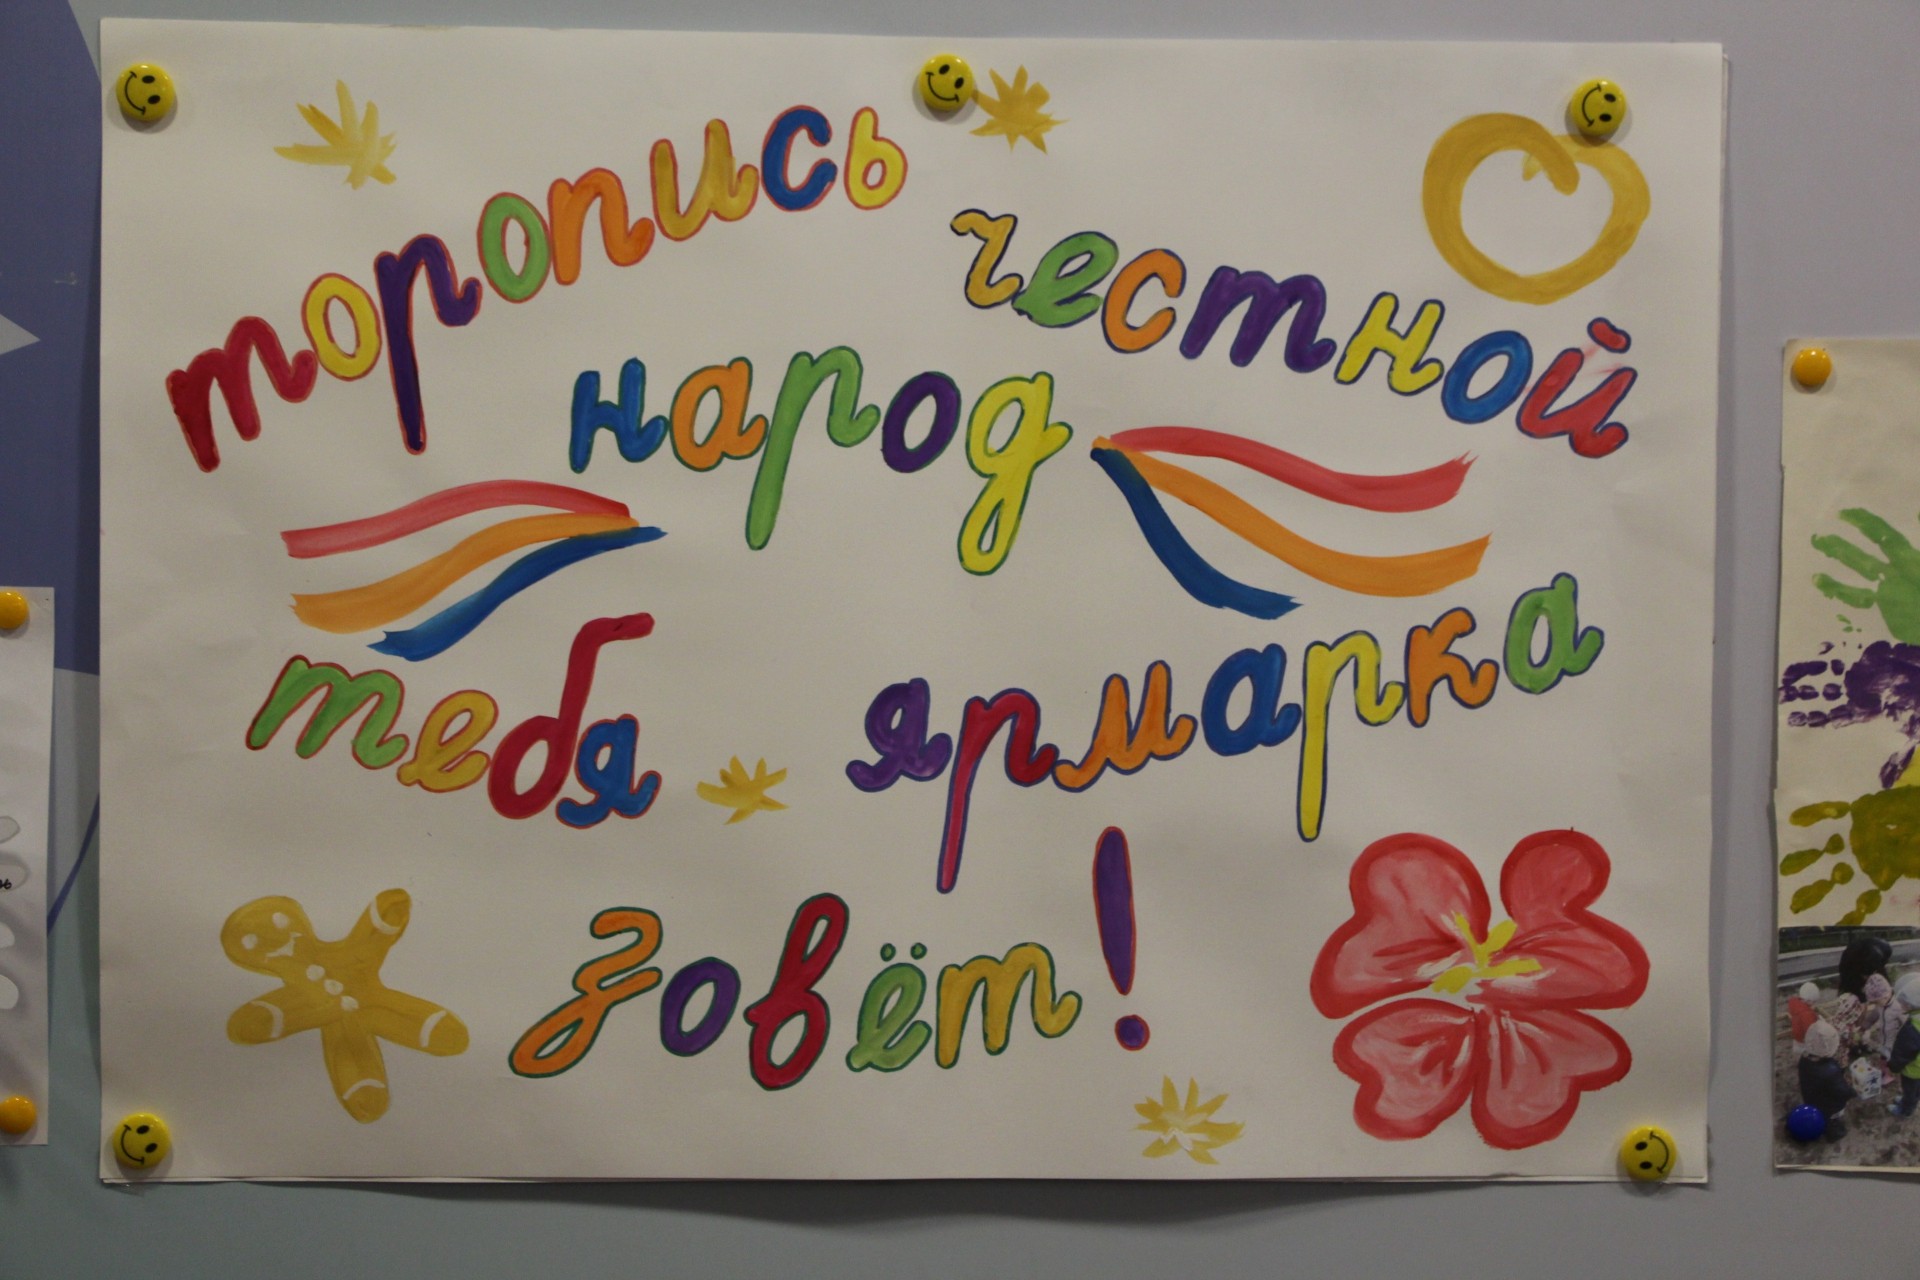 торопись честной
народ
тебя ярмарка
зовёт!